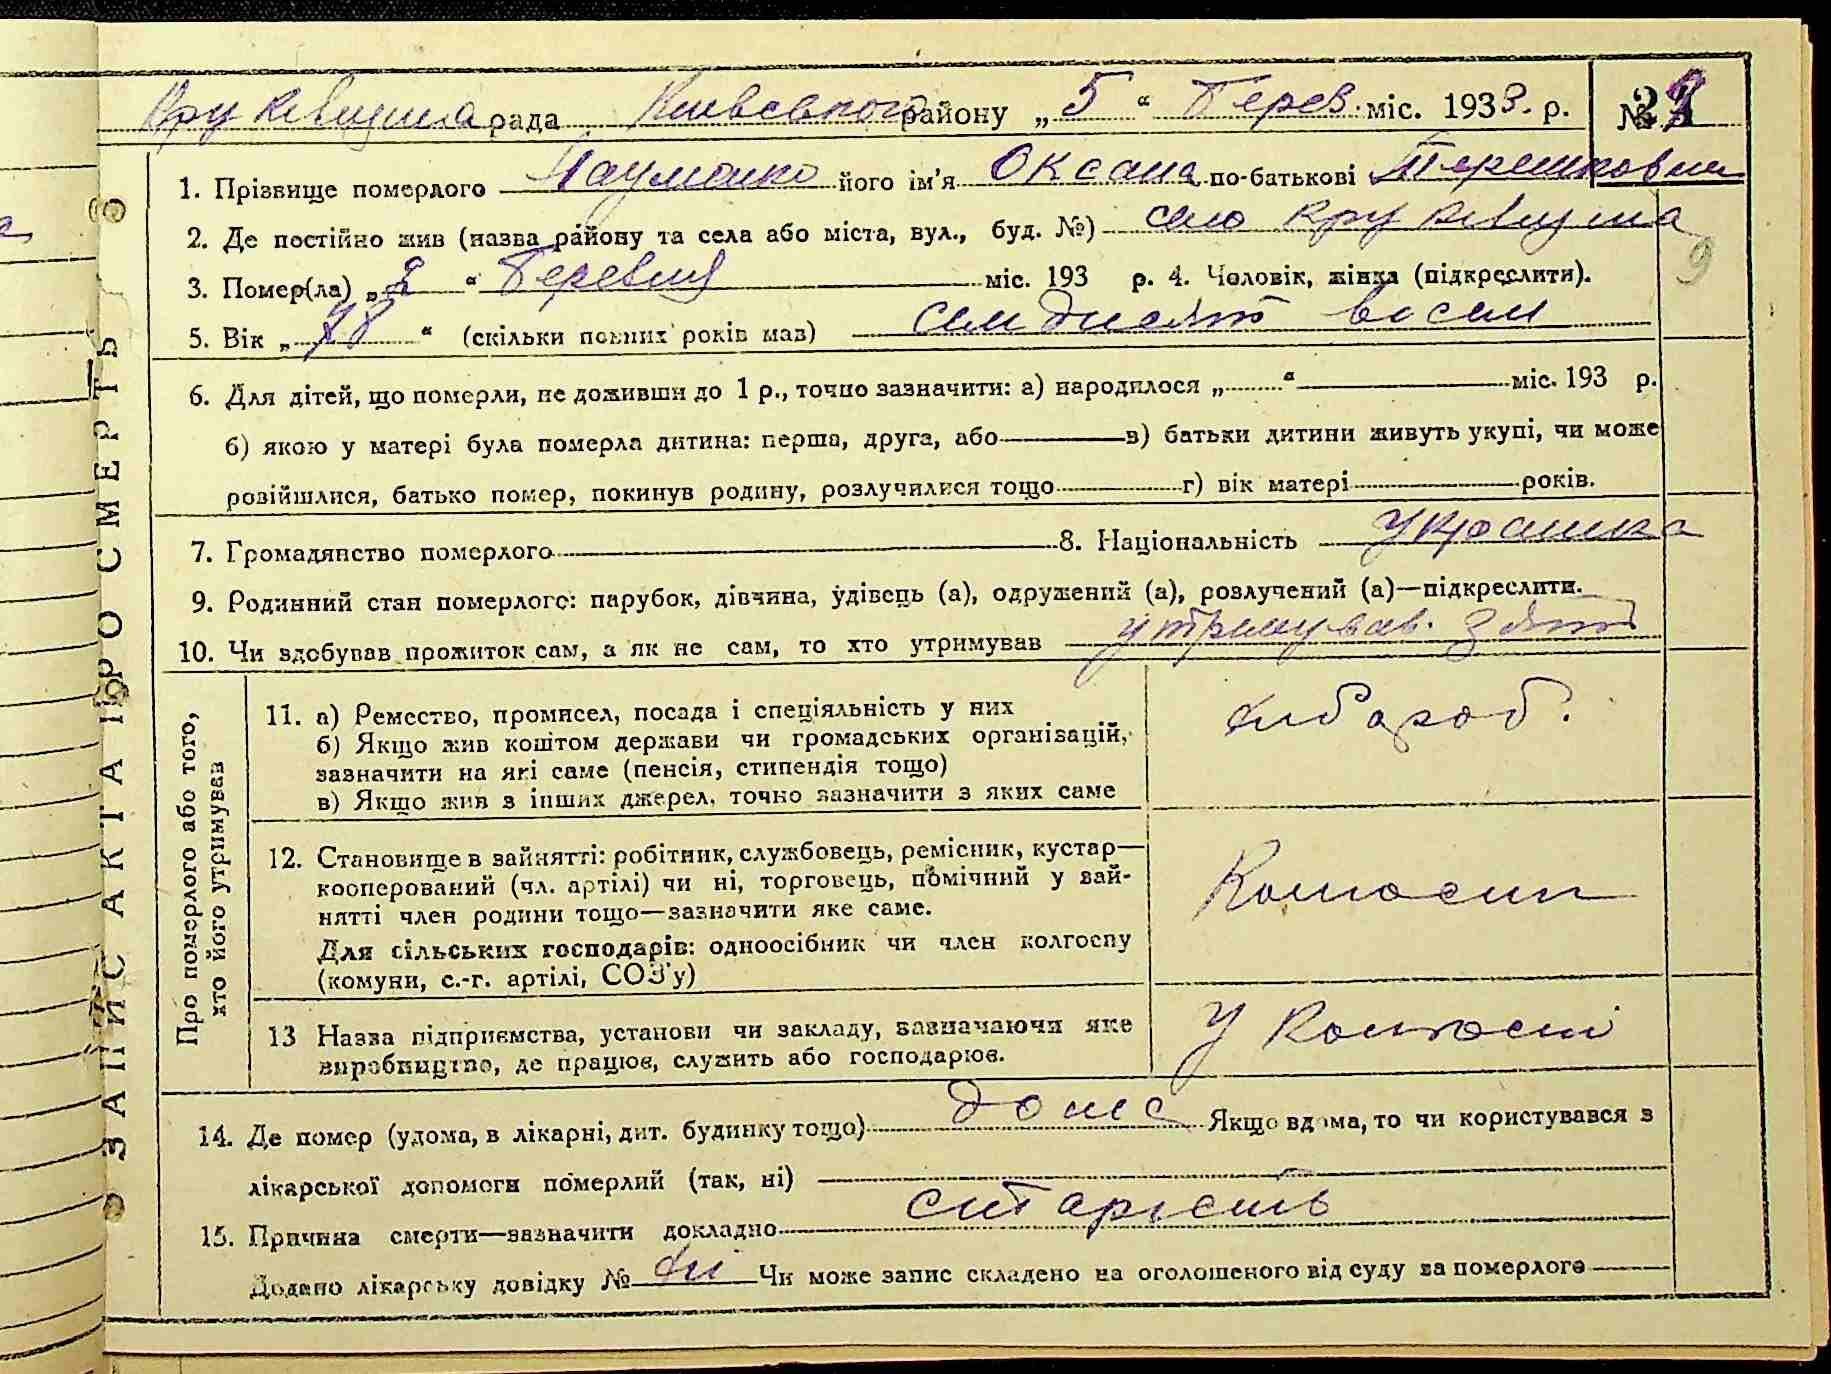 Крюківщина рада Київського району „5“ Берез. міс. 1933. р. №
1. Прізвище померлого Науменко його ім'я Оксана по-батькові Терешковна
2. Де постійно жив (назва району та села або міста, вул., буд. №) село Крюківщина
9
3. Помер(ла) „2“ Березня міс. 193 р. 4. Чоловік, жінка (підкреслити).
5. Вік „78“ (скільки повних років мав) семдисят восем
6. Для дітей, що померли, не доживши до 1 р., точно зазначити: а) народилося „ “ міс. 193 р.
б) якою у матері була померла дитина: перша, друга, або в) батьки дитини живуть укупі, чи може
розійшлися, батько помер, покинув родину, розлучилися тощо г) вік матері років.
7. Громадянство померлого 8. Національність Украінка
9. Родинний стан померлого: парубок, дівчина, удівець (а), одружений (а), розлучений (а)—підкреслити.
10. Чи здобував прожиток сам, а як не сам, то хто утримував утримував. зять
Про померлого або того, хто його утримував
11. а) Ремество, промисел, посада і спеціяльність у них
б) Якщо жив коштом держави чи громадських організацій,
зазначити на які саме (пенсія, стипендія тощо)
в) Якщо жив з інших джерел, точно зазначити з яких саме
хлібороб.
12. Становище в зайнятті: робітник, службовець, ремісник, кустар—
кооперований (чл. артілі) чи ні, торговець, помічний у зай-
нятті член родини тощо—зазначити яке саме.
Для сільських господарів: одноосібник чи член колгоспу
(комуни, с.-г. артілі, СОЗ'у)
13 Назва підприємства, установи чи закладу, зазначаючи яке
виробництво, де працює, служить або господарює.
14. Де помер (удома, в лікарні, дит. будинку тощо) дома Якщо вдома, то чи користувався з
лікарської допомоги померлий (так, ні)
15. Причина смерти—зазначити докладно старість
Додано лікарську довідку № Чи може запис складено на оголошеного від суду за померлого
ЗАПИС АКТА ПРО СМЕРТЬ